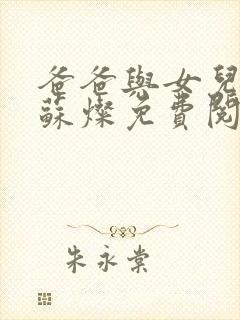 爸爸與女兒
蘇燦免費閱
朱永棠